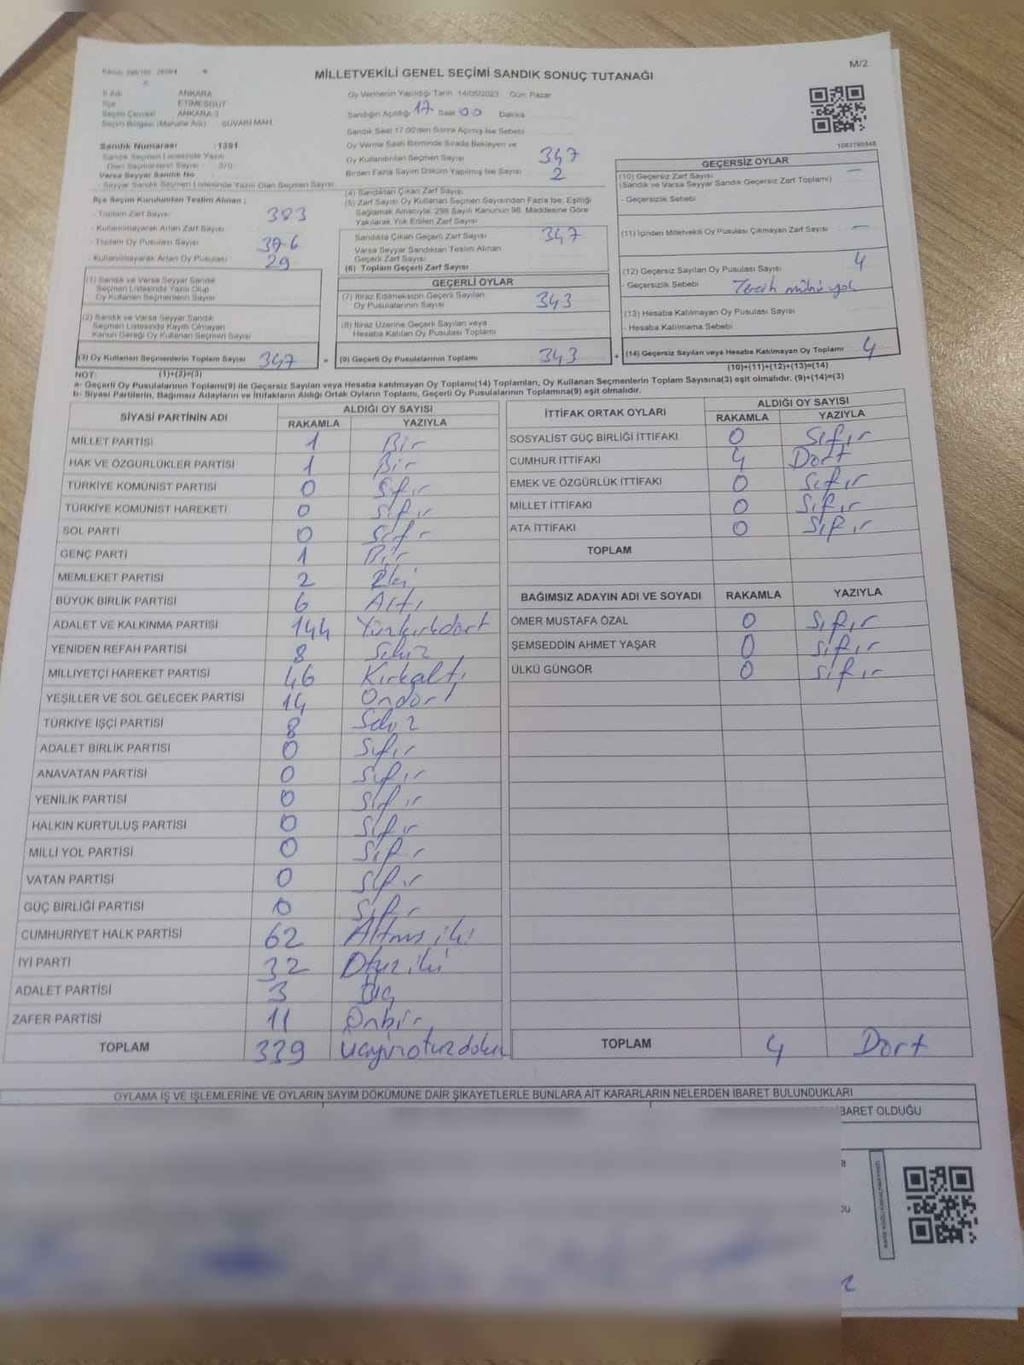 MİLLETVEKİLİ GENEL SEÇİMİ SANDIK SONUÇ TUTANAĞI
M/2
İl Adı ANKARA
İlçe ETİMESGUT
Seçim Çevresi ANKARA 3
Seçim Bölgesi (Mahalle Adı) SÜVARİ MAH.
Sandık Numarası :1391
Sandık Seçmen Listesinde Yazılı
Olan Seçmenlerin Sayısı
Varsa Seyyar Sandık No
Seyyar Sandık Seçmen Listesinde Yazılı Olan Seçmen Sayısı
İlçe Seçim Kurulundan Teslim Alınan ;
- Toplam Zarf Sayısı 383
- Kullanılmayarak Artan Zarf Sayısı
- Toplam Oy Pusulası Sayısı 376
- Kullanılmayarak Artan Oy Pusulası 29
(1) Sandık ve Varsa Seyyar Sandık
Seçmen Listesinde Yazılı Olup
Oy Kullanan Seçmenlerin Sayısı
(2) Sandık ve Varsa Seyyar Sandık
Seçmen Listesinde Kayıtlı Olmayan
Kanun Gereği Oy Kullanan Seçmen Sayısı
(3) Oy Kullanan Seçmenlerin Toplam Sayısı 347
Oy Vermenin Yapıldığı Tarih 14/05/2023 Gün: Pazar
Sandığın Açıldığı 17 Saat 00 Dakika
Sandık Saat 17.00'den Sonra Açılmış İse Sebebi
Oy Verme Saati Bitiminde Sırada Bekleyen ve
Oy Kullandırılan Seçmen Sayısı 347
Birden Fazla Sayım Döküm Yapılmış İse Sayısı 2
(4) Sandıktan Çıkan Zarf Sayısı
(5) Zarf Sayısı Oy Kullanan Seçmen Sayısından Fazla İse, Eşitliği
Sağlamak Amacıyla, 298 Sayılı Kanunun 98. Maddesine Göre
Yakılarak Yok Edilen Zarf Sayısı
Sandıkta Çıkan Geçerli Zarf Sayısı 347
Varsa Seyyar Sandıktan Teslim Alınan
Geçerli Zarf Sayısı
(6) Toplam Geçerli Zarf Sayısı
GEÇERLİ OYLAR
(7) İtiraz Edilmeksizin Geçerli Sayılan
Oy Pusulalarının Sayısı 343
(8) İtiraz Üzerine Geçerli Sayılan veya
Hesaba Katılan Oy Pusulası Toplamı
= (9) Geçerli Oy Pusulalarının Toplamı 343
GEÇERSİZ OYLAR
(10) Geçersiz Zarf Sayısı —
(Sandık ve Varsa Seyyar Sandık Geçersiz Zarf Toplamı)
- Geçersizlik Sebebi
(11) İçinden Milletvekili Oy Pusulası Çıkmayan Zarf Sayısı —
(12) Geçersiz Sayılan Oy Pusulası Sayısı 4
- Geçersizlik Sebebi Tercih mührü yok
(13) Hesaba Katılmayan Oy Pusulası Sayısı
- Hesaba Katılmama Sebebi
+ (14) Geçersiz Sayılan veya Hesaba Katılmayan Oy Toplamı 4
(10)+(11)+(12)+(13)=(14)
NOT: (1)+(2)=(3)
a- Geçerli Oy Pusulalarının Toplamı(9) ile Geçersiz Sayılan veya Hesaba katılmayan Oy Toplamı(14) Toplamları, Oy Kullanan Seçmenlerin Toplam Sayısına(3) eşit olmalıdır. (9)+(14)=(3)
b- Siyasi Partilerin, Bağımsız Adayların ve İttifakların Aldığı Ortak Oyların Toplamı, Geçerli Oy Pusulalarının Toplamına(9) eşit olmalıdır.
SİYASİ PARTİNİN ADI ALDIĞI OY SAYISI
RAKAMLA YAZIYLA
MİLLET PARTİSİ 1 Bir
HAK VE ÖZGÜRLÜKLER PARTİSİ 1 Bir
TÜRKİYE KOMÜNİST PARTİSİ 0 Sıfır
TÜRKİYE KOMÜNİST HAREKETİ 0 Sıfır
SOL PARTİ 0 Sıfır
GENÇ PARTİ 1 Bir
MEMLEKET PARTİSİ 2 İki
BÜYÜK BİRLİK PARTİSİ 6 Altı
ADALET VE KALKINMA PARTİSİ 144 Yüzkırkdört
YENİDEN REFAH PARTİSİ 8 Sekiz
MİLLİYETÇİ HAREKET PARTİSİ 46 Kırkaltı
YEŞİLLER VE SOL GELECEK PARTİSİ 14 Ondört
TÜRKİYE İŞÇİ PARTİSİ 8 Sekiz
ADALET BİRLİK PARTİSİ 0 Sıfır
ANAVATAN PARTİSİ 0 Sıfır
YENİLİK PARTİSİ 0 Sıfır
HALKIN KURTULUŞ PARTİSİ 0 Sıfır
MİLLİ YOL PARTİSİ 0 Sıfır
VATAN PARTİSİ 0 Sıfır
GÜÇ BİRLİĞİ PARTİSİ 0 Sıfır
CUMHURİYET HALK PARTİSİ 62 Altmış iki
İYİ PARTİ 32 Otuz iki
ADALET PARTİSİ 3 Üç
ZAFER PARTİSİ 11 Onbir
TOPLAM 339 üçyüzotuzdokuz
İTTİFAK ORTAK OYLARI ALDIĞI OY SAYISI
RAKAMLA YAZIYLA
SOSYALİST GÜÇ BİRLİĞİ İTTİFAKI 0 Sıfır
CUMHUR İTTİFAKI 4 Dört
EMEK VE ÖZGÜRLÜK İTTİFAKI 0 Sıfır
MİLLET İTTİFAKI 0 Sıfır
ATA İTTİFAKI 0 Sıfır
TOPLAM
BAĞIMSIZ ADAYIN ADI VE SOYADI RAKAMLA YAZIYLA
ÖMER MUSTAFA ÖZAL 0 Sıfır
ŞEMSEDDİN AHMET YAŞAR 0 Sıfır
ÜLKÜ GÜNGÖR 0 Sıfır
TOPLAM 4 Dört
OYLAMA İŞ VE İŞLEMLERİNE VE OYLARIN SAYIM DÖKÜMÜNE DAİR ŞİKAYETLERLE BUNLARA AİT KARARLARIN NELERDEN İBARET BULUNDUKLARI
İBARET OLDUĞU